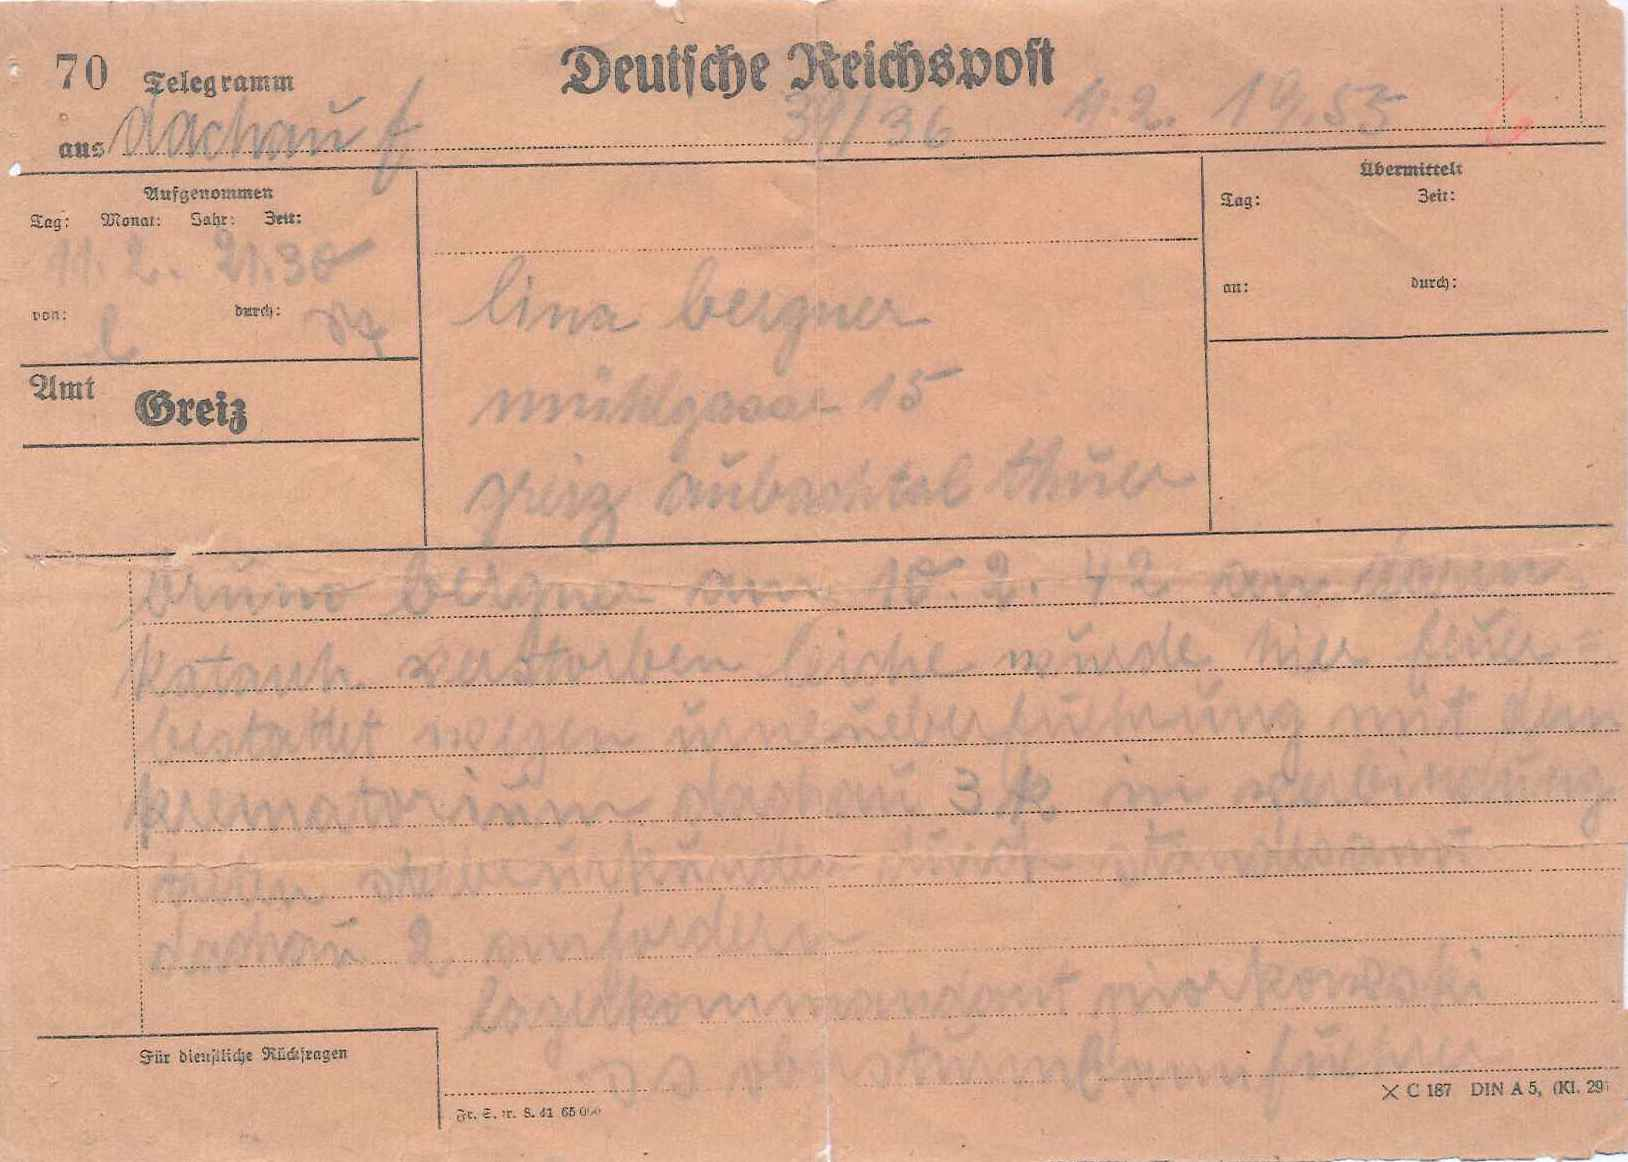 70 Telegramm Deutsche Reichspost
aus dachau f 39/36 11.2. 19,55
Aufgenommen
Tag: Monat: Jahr: Zeit:
11. 2. 21.30
von: durch:
l
Amt Greiz
lina bergner
mühlgasse 15
greiz aubachtal thuer
Übermittelt
Tag: Zeit:
an: durch:
bruno bergner am 10. 2. 42 an darm
katarrh verstorben leiche wurde hier feuer=
bestattet wegen urneueberfuehrung mit dem
krematorium dachau 3 k in verbindung
treten sterbeurkunde durch standesamt
dachau 2 anfordern
lagerkommandant piorkowski
ss sturmbannfuehrer
Für dienstliche Rückfragen
C 187 DIN A 5, (Kl. 29)